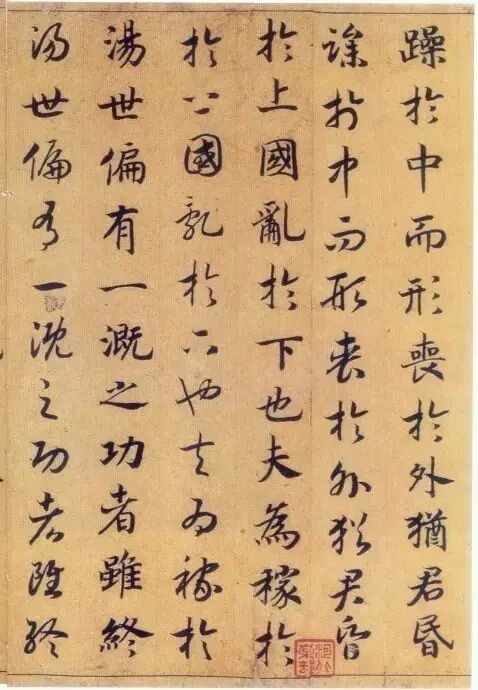 躁於中而形喪於外猶君昏
躁於中而形喪於外猶君昏
於上國亂於下也夫為稼於
於上國亂於下也夫為稼於
湯世偏有一溉之功者雖終
湯世偏有一溉之功者雖終